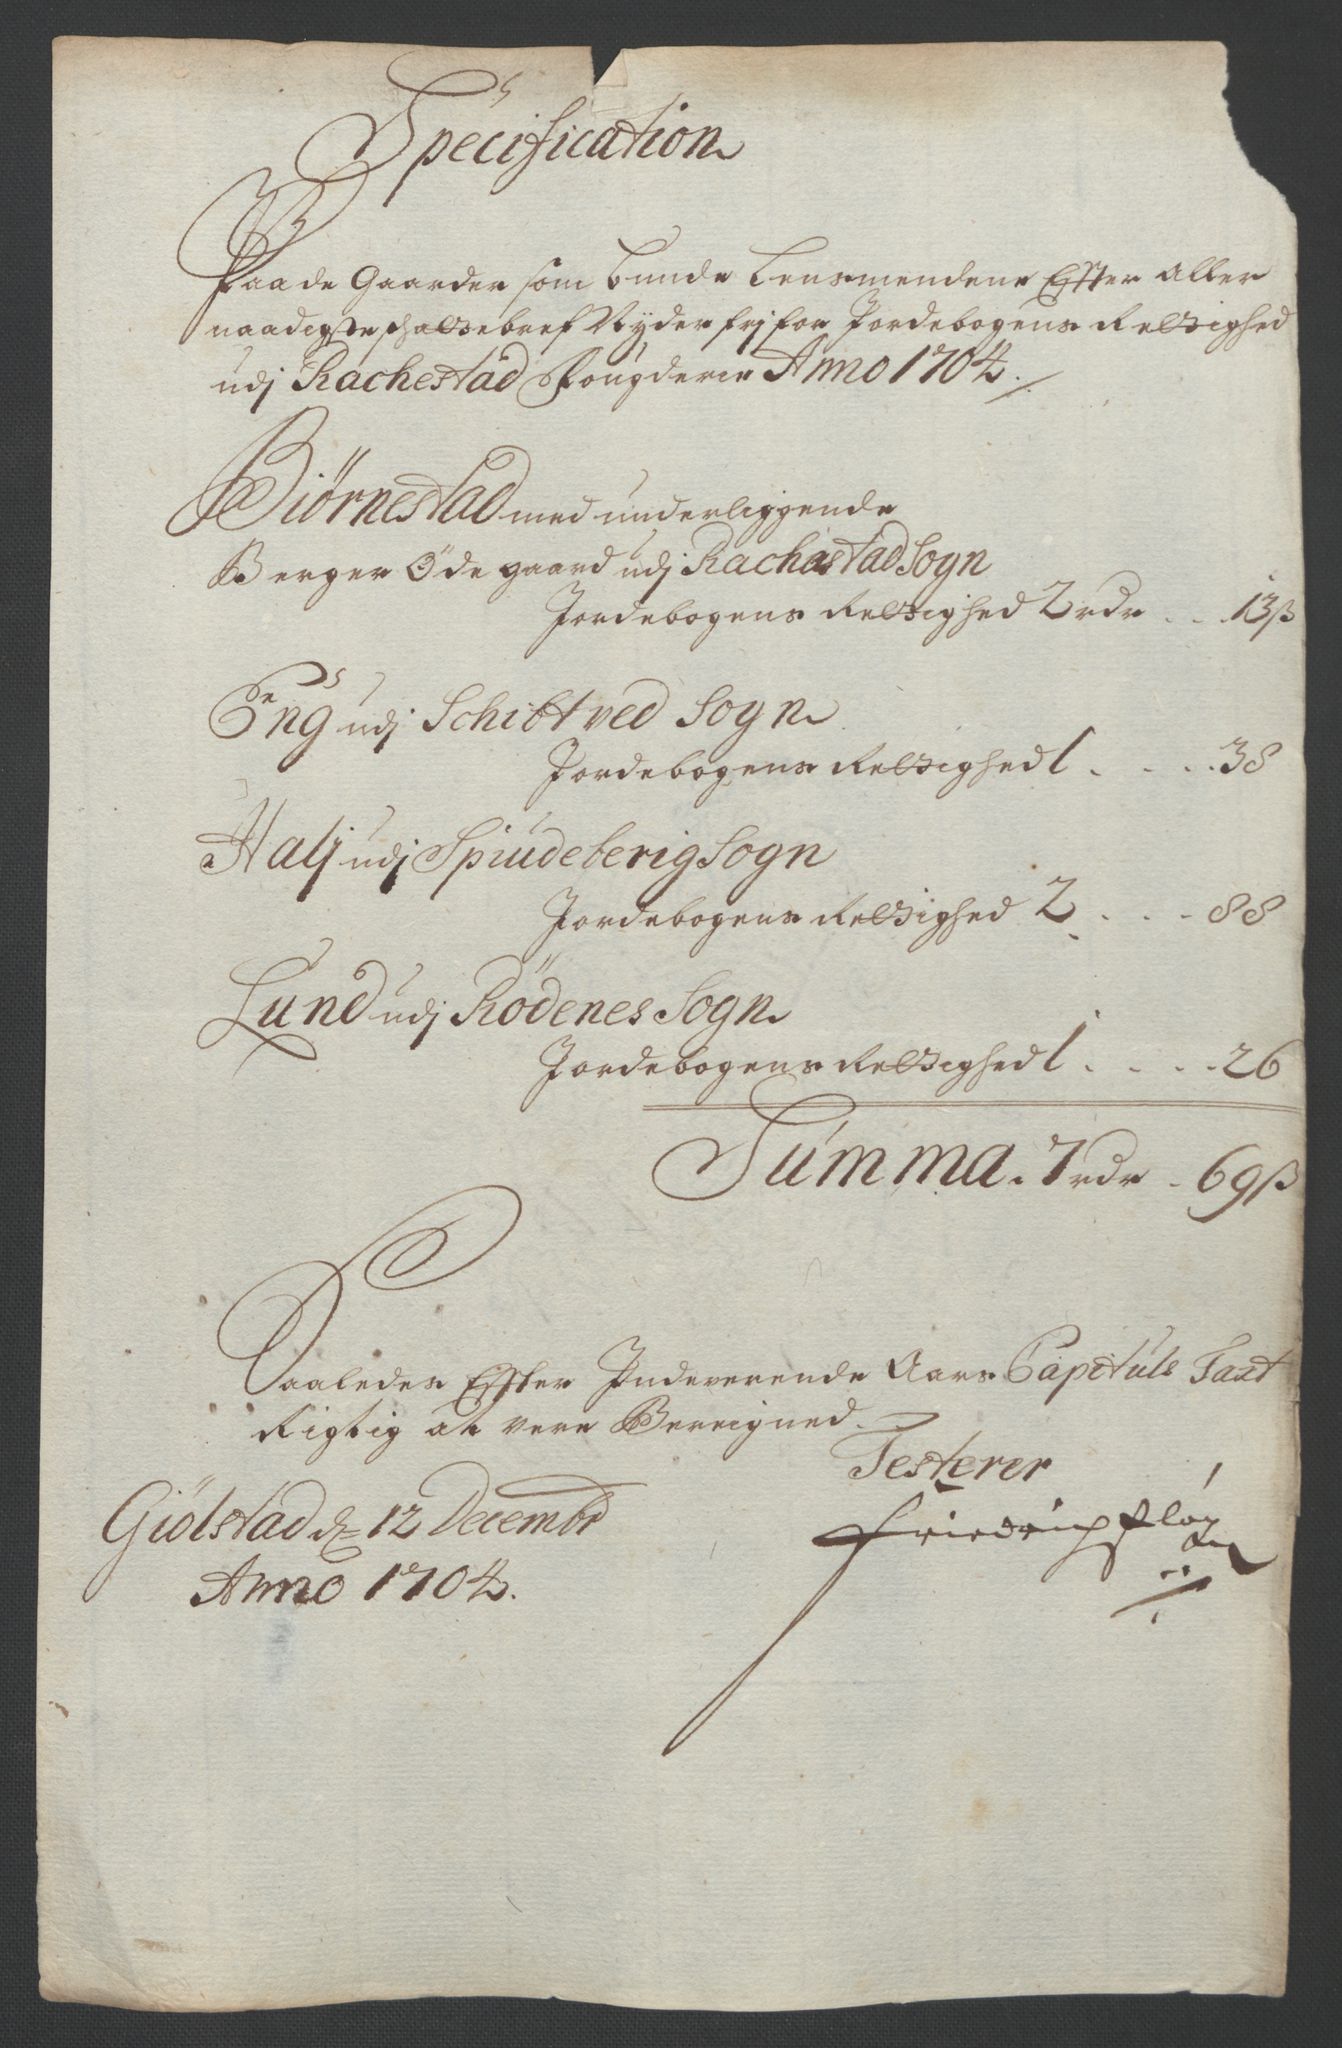 Specification
Paa de Gaarder som bunde Lensmendene Effter Aller
naadigste schattebref Nyder frj for Jordebogens Rettighed
udj Rachestad Fougderie Anno 1704.
Biörnestad med underliggende
Berger Öde gaard udj Rachestad Sogn
Jordebogens Rettighed 2 rdr . . 13 ß
Eng udj Schibtved Sogn
Jordebogens Rettighed 1 . . . . 38
Halj udj Spiudeberig Sogn
Jordebogens Rettighed 2 . . . 88
Lund udj Rödenes Sogn
Jordebogens Rettighed 1 . . . . 26
Summa . 7 rdr . 69 ß
Saaledes Effter Indeverende Aars Capituls Taxt
Rigtig at vere Bereigned.
Testerer
Giölstad d 12 Decembr
Friedrich
Anno 1704.